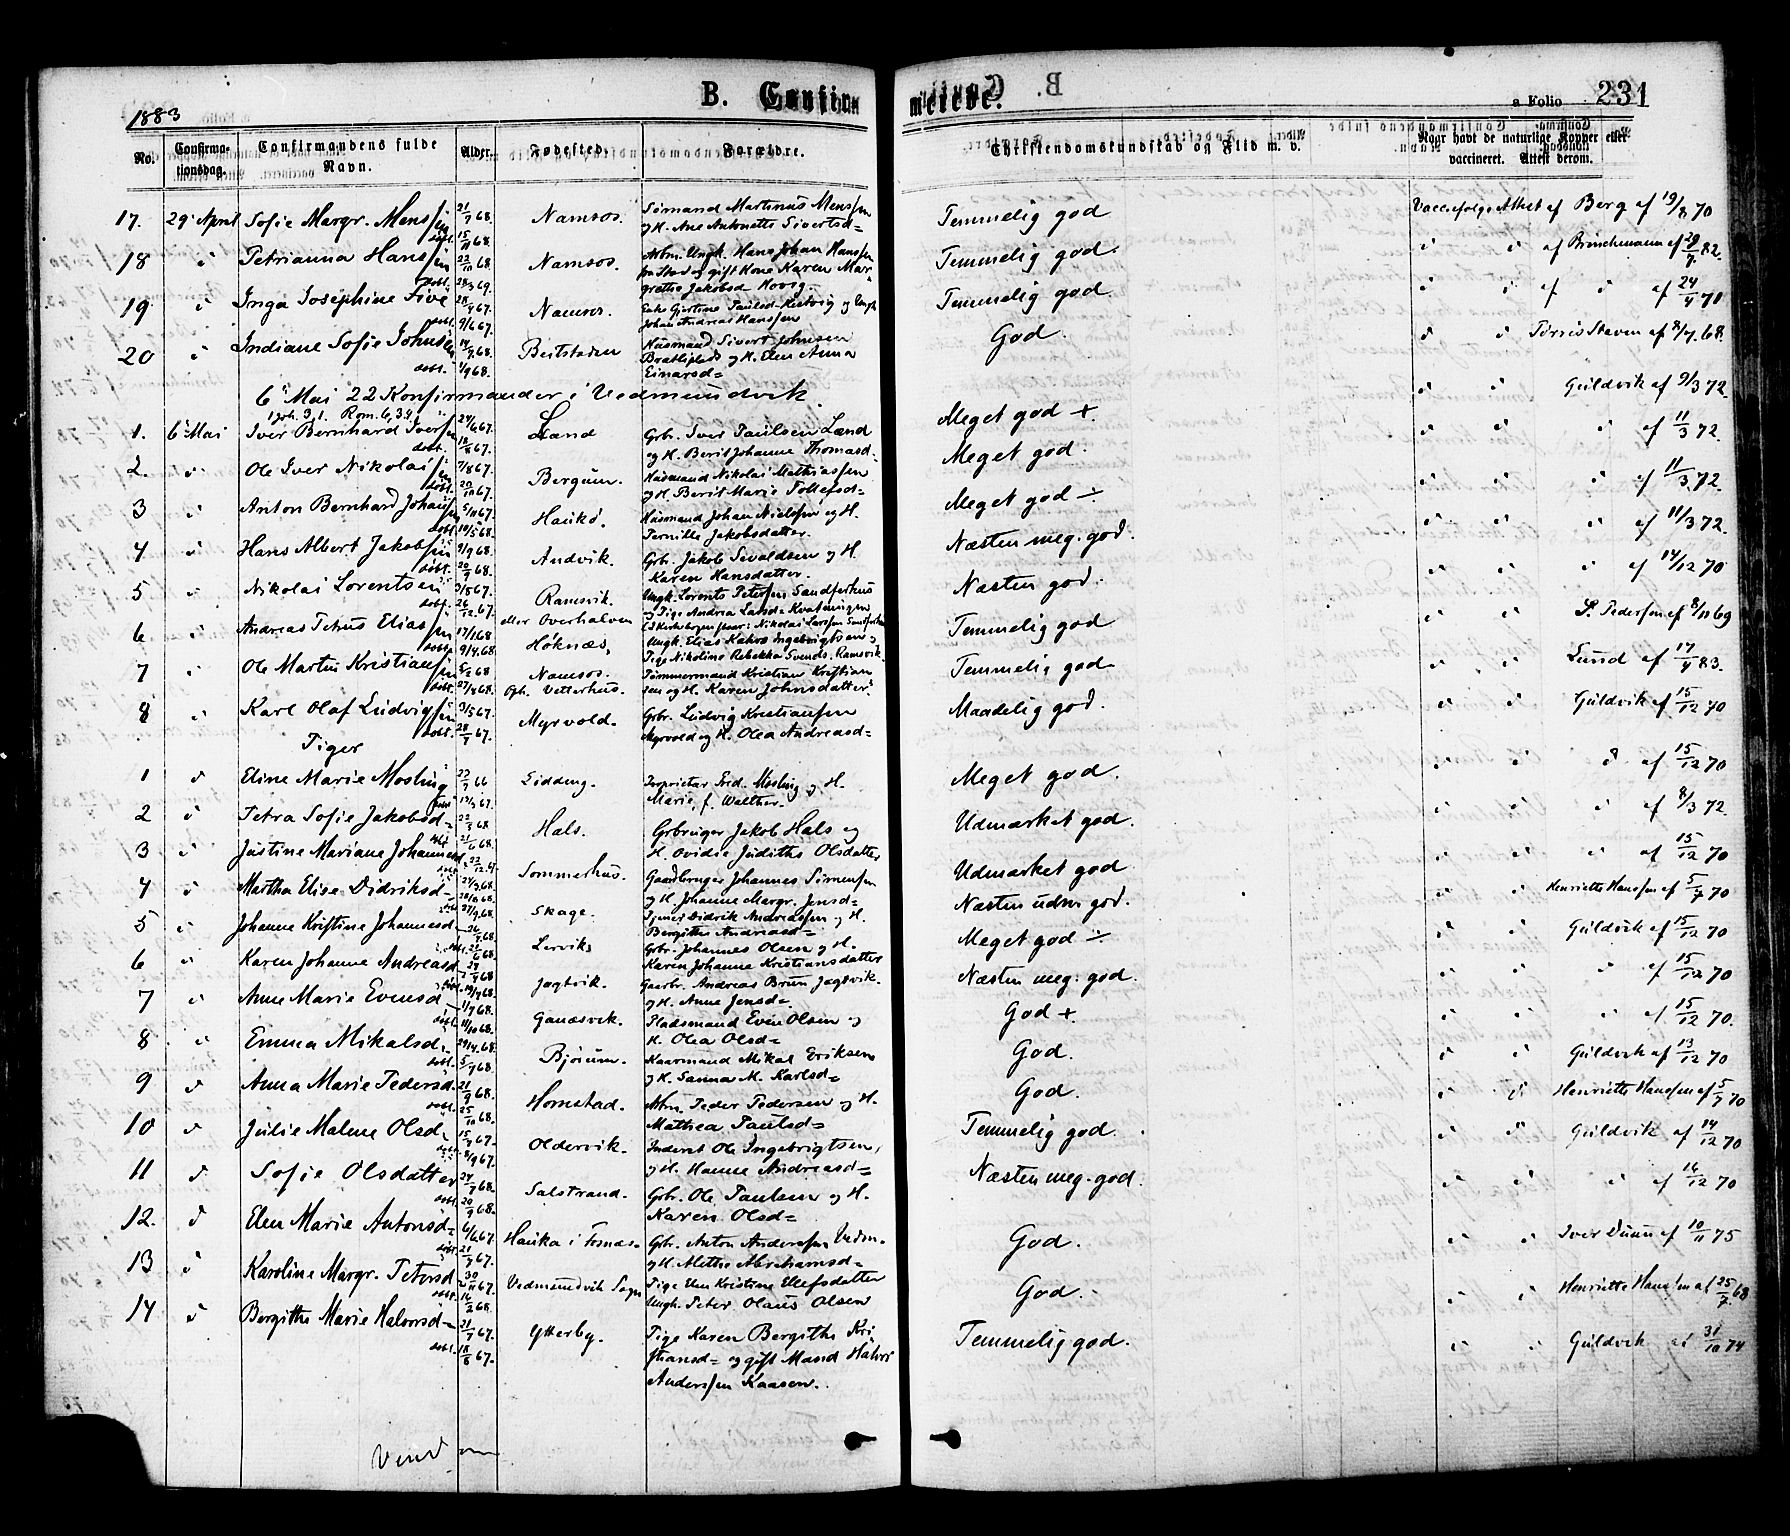 1883
B. Confirmerede.
a Folio 231
No. Confirmationsdag. Confirmandens fulde Navn. Alder. Fødested. Forældre. Christendomskundskab og Flid m. v. Naar havt de naturlige Kopper eller vaccineret. Attest derom.
17. 29 April Sofie Margr. Menssen 21/7 68. døbt. 15/11 68. Namsos. Sømand Martinus Menssen og H. Ane Antonette Sivertsd= Temmelig god Vacc. ifølge Attest af Berg af 19/8 70
18 " Petrianna Hanssen 22/10 68. døbt. 28/3 69. Namsos. Arbm. Ungk. Hans Johan Hanssen og gift Kone Karen Margrethe Jakobsd= Temmelig god. " " af Brinchmann af 29/7 82.
19 " Inga Josephine 28/4 67. døbt. 9/6 67. Namsos. Enke Gjertine Paulsd= og Ungk. Johan Andreas Hanssen Temmelig god. " " af " af 24/4 71
20 " Indiane Sofie Johnsen 14/7 68. døbt. 1/9 68. Beitstaden Husmand Sivert Johnsen og H. Elen Anna Einarsd= God. " " af 8/7 68.
6te Mai 22 Konfirmander i Vedmundvik
1 Joh. 3,1. Rom. 6,3.4
1. 6te Mai Iver Bernhard Iverssen 24/6 67. døbt. 18/8 67. Land Grbr. Iver Paulsen Land og H. Berit Johanne Thomasd. Meget god + " " Guldvik af 9/3 72.
2. " Ole Iver Nikolaissen 7/8 67. døbt. 20/10 67. Bergum. Husmand Nikolai Mathiassen og H. Berit Marie Tollefsd= Meget god. " " " af 11/3 72.
3 " Anton Bernhard Johanssen 5/11 67. døbt. 10/5 68. Haukø. Husmand Johan Nielssen og H. Pernille Jakobsdatter. Meget god ÷ " " " af 11/3 72.
4 " Hans Albert Jakobssen 9/9 68. døbt. 20/9 68. Andvik. Grb. Jakob Sivaldsen og H. Karen Hansdatter. Næsten meg. god. " " " af 11/3 72.
5 " Nikolai Lorentsen 3/8 67. døbt. 26/12 67. Ramsvik. eller Overhalven Ungk. Lorents Petersen og Pige Andrea Larsd= Næsten god. " " " af 14/12 70
6 " Andreas Petrus Eliassen 17/1 68 døbt. 9/4 68. Høknæs, Ungk. Elias Ingebrigtsen og Pige Nikoline Rebekka Svends. Ramsvik. Temmelig god " " P. Pedersen af 8/11 69
7 " Ole Martin Kristianssen 5/2 68 døbt. 27/8 68. Namsos. Oph. Vetterhus. Tømmermand Kristian Kristiansen og H. Karen Johnsdatter. Temmelig god " " Lund af 17/4 83.
8 " Karl Olaf Ludvigssen 3/5 67. døbt. 28/7 67. Myrvold. Grbr. Ludvig Kristianssen Myrvold og H. Olea Andreasd= Maadelig god. " " Guldvik af 15/12 70
Piger
1 " Eline Marie Mosling 22/7 66 13/3 67. Lidding. Proprietær Frd. Mosling og H. Marie, f. Walther. Meget god. " " " af 15/12 70
2 " Petra Sofie Jakobsd= 22/3 68 døbt 21/6 68. Hals. Grbruger Jakob Hals og H. Ovidie Judithe Olsdatter Udmærket god. " " " af 8/3 72.
3 " Justine Mariane Johannesd. 22/12 67 døbt 24/3 68. Sommerhus. Gaardbruger Johannes Sørenssen og H. Johanne Margr. Jensd= Udmærket god " " " af 15/12 70
4 " Martha Elise Didriksd= 28/8 68. døbt 27/9 68. Skage. Tjener Didrik Andreassen og H. Bergitte Andreasd= Næsten udm. god. " " Henriette Hanssen af 5/7 70
5 " Johanne Kristine Johannesd= Lervik Grbr. Johannes Olsen og H. Karen Johanne Kristiansdatter Meget god ÷ " " Guldvik af 15/12 70
6 " Karen Johanne Andreasd= døbt 19/7 68. Jagtvik. Gaardbr. Andreas Brun Jagtvik. og H. Anne Jensd= Næsten meg. god. " " " af 15/12 70
7 " Anne Marie Evensd= 1/9 68 døbt. 11/10 68. Ganæsvik. Pladsmand Even Olsen og H. Olea Olsd= God +. " " " af 15/12 70.
8 " Emma Mikalsd. 29/4 68. døbt. 5/7 68. Bjørum. Mikal Eriksen og H. Sanna M. Karlsd= God. " " Guldvik af 13/12 70
9 " Anna Marie Pedersd. 21/9 68. døbt. 25/10 68. Homstad. Arbm. Peder Pedersen og H. Mathea Paulsd= God. " " Henriette Hanssen af 5/7 70
10 " Julie Malene Olsd. 15/7 67. døbt 8/9 67. Oldervik. Inderst Ole Ingebrigtsen, og H. Hanne Andreasd= Temmelig god. " " Guldvik af 14/12 70
11 " Sofie Olsdatter 24/7 68. døbt. 20/9 68. Salstrand. Grbr. Ole Paulsen og H. Karen Olsd= Næsten meg. god. " " " af 16/12 70
12. " Elen Marie Antonsd= 6/6 67. døbt. 21/7 67. Hauka i Fosnæs= Grb. Anton Anderssen Vedm. og H. Alethe Abrahamsd= God. " " Iver Duun af 10/11 75
13 " Karoline Margr. Petersd 30/11 67. døbt. 16/2 68. Vedmundvik Sogn Pige Elen Kristine Ellefsdatter Ungk. Peter Olaus Olsen God. " " Henriette Hanssen af 25/7 68
14 " Bergitte Marie Halvorsd= 21/7 67. døbt. 18/8 67. Ytterby. Pige Karen Bergitte Kristiansd= og gift Mand Halvor Anderssen Kaasen. Temmelig god. " " Guldvik af 31/10 74
Vend